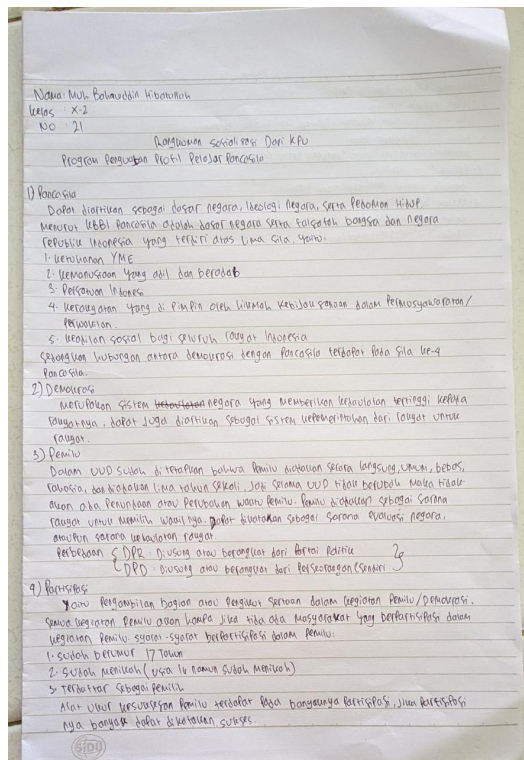 Nama: Muh Bahauddin Hibatullah
Kelas : X-2
NO : 21
Rangkuman Sosialisasi Dari KPU
Program Penguatan Profil Pelajar Pancasila
1) Pancasila
Dapat diartikan sebagai dasar negara, Ideologi Negara, serta Pedoman Hidup.
Menurut KBBI Pancasila adalah dasar negara serta falsafah bangsa dan negara
republik Indonesia yang terdiri atas lima sila, yaitu.
1. Ketuhanan YME
2. Kemanusiaan yang adil dan beradab
3. Persatuan Indones
4. Kerakyatan yang di Pimpin oleh hikmah kebijaksanaan dalam Permusyawaratan/
Perwakilan.
5. Keadilan sosial bagi seluruh rakyat Indonesia
Sedangkan hubungan antara demokrasi dengan Pancasila terdapat Pada sila ke-4
Pancasila.
2) Demokrasi
Merupakan sistem kedaulatan negara yang memberikan kedaulatan tertinggi kepada
rakyatnya, dapat juga diartikan sebagai sistem kepemerintahan dari rakyat untuk
rakyat.
3) Pemilu
Dalam UUD Sudah di tetapkan bahwa Pemilu diadakan secara langsung, umum, bebas,
rahasia, dan diadakan lima tahun sekali. Jadi selama UUD tidak berubah Maka tidak
akan ada Penundaan atau Perubahan waktu Pemilu. Pemilu diadakan sebagai sarana
rakyat untuk memilih wakilnya. Dapat dikatakan sebagai sarana evaluasi negara,
ataupun sarana kedaulatan rakyat.
Perbedaan { DPR : Diusung atau berangkat dari Partai Politik
DPD : Diusung atau berangkat dari Perseorangan (sendiri
4) Partisipasi
Yaitu Pengambilan bagian atau Pengikut sertaan dalam kegiatan Pemilu / Demokrasi.
Semua kegiatan Pemilu akan hampa jika tida ada masyarakat yang berpartisipasi dalam
kegiatan Pemilu syarat-syarat berpartisipasi dalam pemilu:
1. Sudah berumur 17 Tahun
2. Sudah menikah (usia 16 namun sudah menikah)
3. Terdaftar sebagai Pemilih
Alat Ukur kesuksesan Pemilu terdapat Pada banyaknya Partisipasi, jika Partisipasi
nya banyak dapat dikatakan sukses.
SIDU